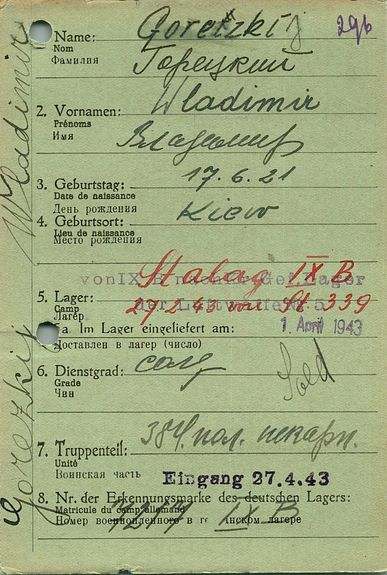 29b
1. Name: Goretzkij
Nom
Фамилия Горецкий
2. Vornamen: Wladimir
Prénoms
Имя Владимир
3. Geburtstag: 17.6.21
Date de naissance
День рождения
4. Geburtsort: Kiew
Lieu de naissance
Место рождения
Stalag IX B
von IX B
der Luftwaffe
5. Lager: 27.2.43 von St 339
Camp
Лагерь
a. Im Lager eingeliefert am: 1. April 1943
Доставлен в лагерь (число)
6. Dienstgrad: солд
Grade
Чин
Sold
7. Truppenteil: 384. пол. пекарн.
Unité
Воинская часть
Eingang 27.4.43
8. Nr. der Erkennungsmarke des deutschen Lagers:
Matricule du camp allemand
Номер военнопленного в лагере
IX B
Gorezkij Wladimir